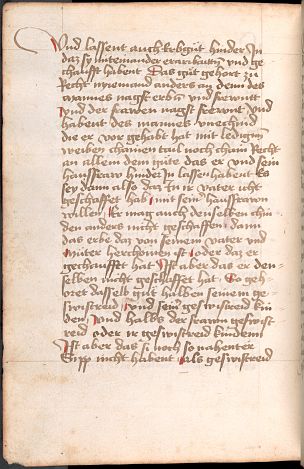 Vnd lassent auch erbgut hinder In
daz sy miteinander erarbaitten vnd ge
chaufft habent Das gut gehort zu
Recht nyemand anders an dem des
mannes nagst erbn vnd frewnt
vnd der frawen nagst frewnt vnd
habent des mannes vnechind
die er vor gehabt hat mit ledigen
weiben chainen tail noch chain Recht
an allem dem gute das er vnd sein
hausfraw hinder In lassen habent Es
sey dann also daz In ir vater icht
geschaffet hab mit seiner hausfrawn
willen Er mag auch denselben chin
den anders nicht geschaffen dann
das erbe daz von seinem vater vnd
muter herchomen ist oder daz er
gechaufft hat Ist aber das er den
selben nicht geschafft hat So geh
oret dasselb gut halbes seinem ge
swistreid vnd sein geswistreid kin
den vnd halbs der frawn geswist
reid oder ir geswistreid kindern
Ist aber das si noch so nahenter
Sipp nicht habent als geswistreid